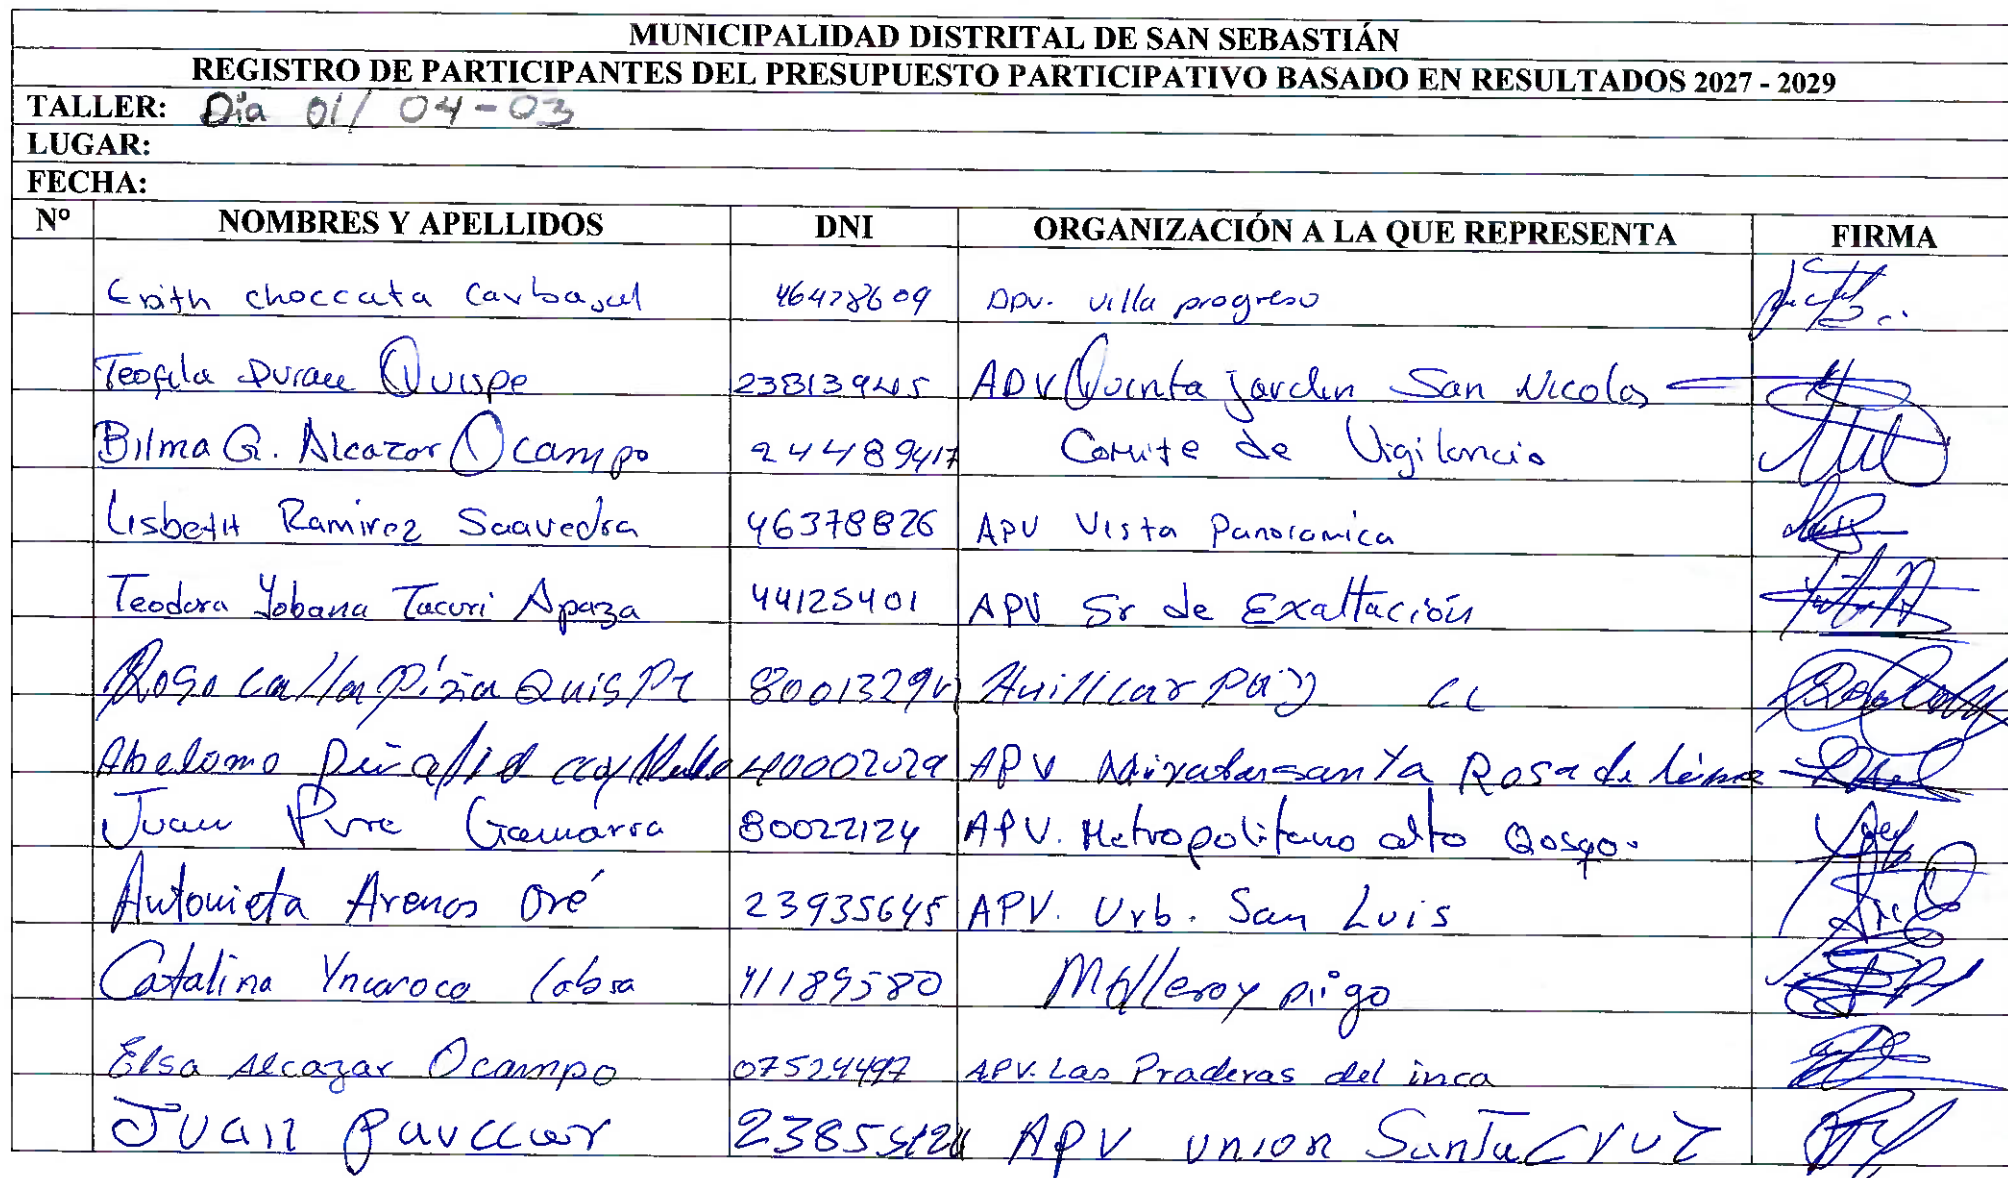 MUNICIPALIDAD DISTRITAL DE SAN SEBASTIÁN
REGISTRO DE PARTICIPANTES DEL PRESUPUESTO PARTICIPATIVO BASADO EN RESULTADOS 2027 - 2029
TALLER: Día 01/ 04-03
LUGAR:
FECHA:
Nº NOMBRES Y APELLIDOS DNI ORGANIZACIÓN A LA QUE REPRESENTA FIRMA
choccata Carbajal 46478609 APV. villa progreso
Teofila Duran Quispe 23813945 ADV Quinta Jardin San Nicolas
Bilma G. Alcazar Ocampo 24489417 Comite de Vigilancia
Lisbeth Ramirez Saavedra 46378826 APV Vista Panoramica
Teodora Yobana Tacuri Apaza 44125401 APV Sr de Exaltación
Rosa Quispe
APV santa Rosa de lima
Juan Gamarra 80022124 APV. Metropolitano alto Qosqo.
Antonieta Arenas Oré 23935645 APV. Urb. San Luis
Catalina Yncaroca 41189580
Elsa Alcazar Ocampo 07524497 APV. Las Praderas del inca
Juan Pauccar APV union Santa Cruz